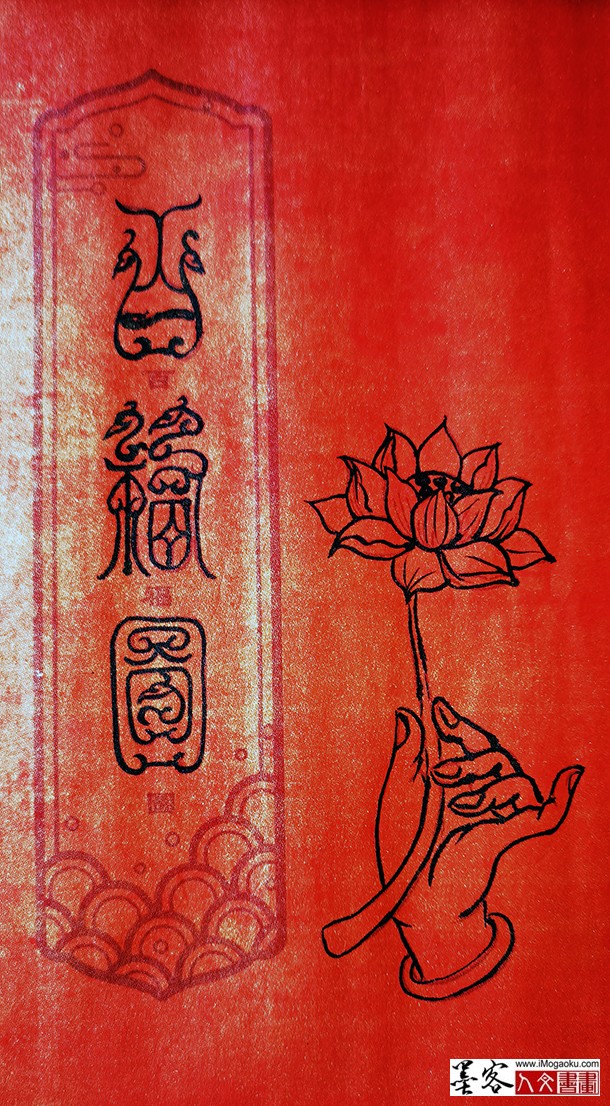 百
福
圖
百
福
圖
www.iMogaoku.com
墨客
人文書畫